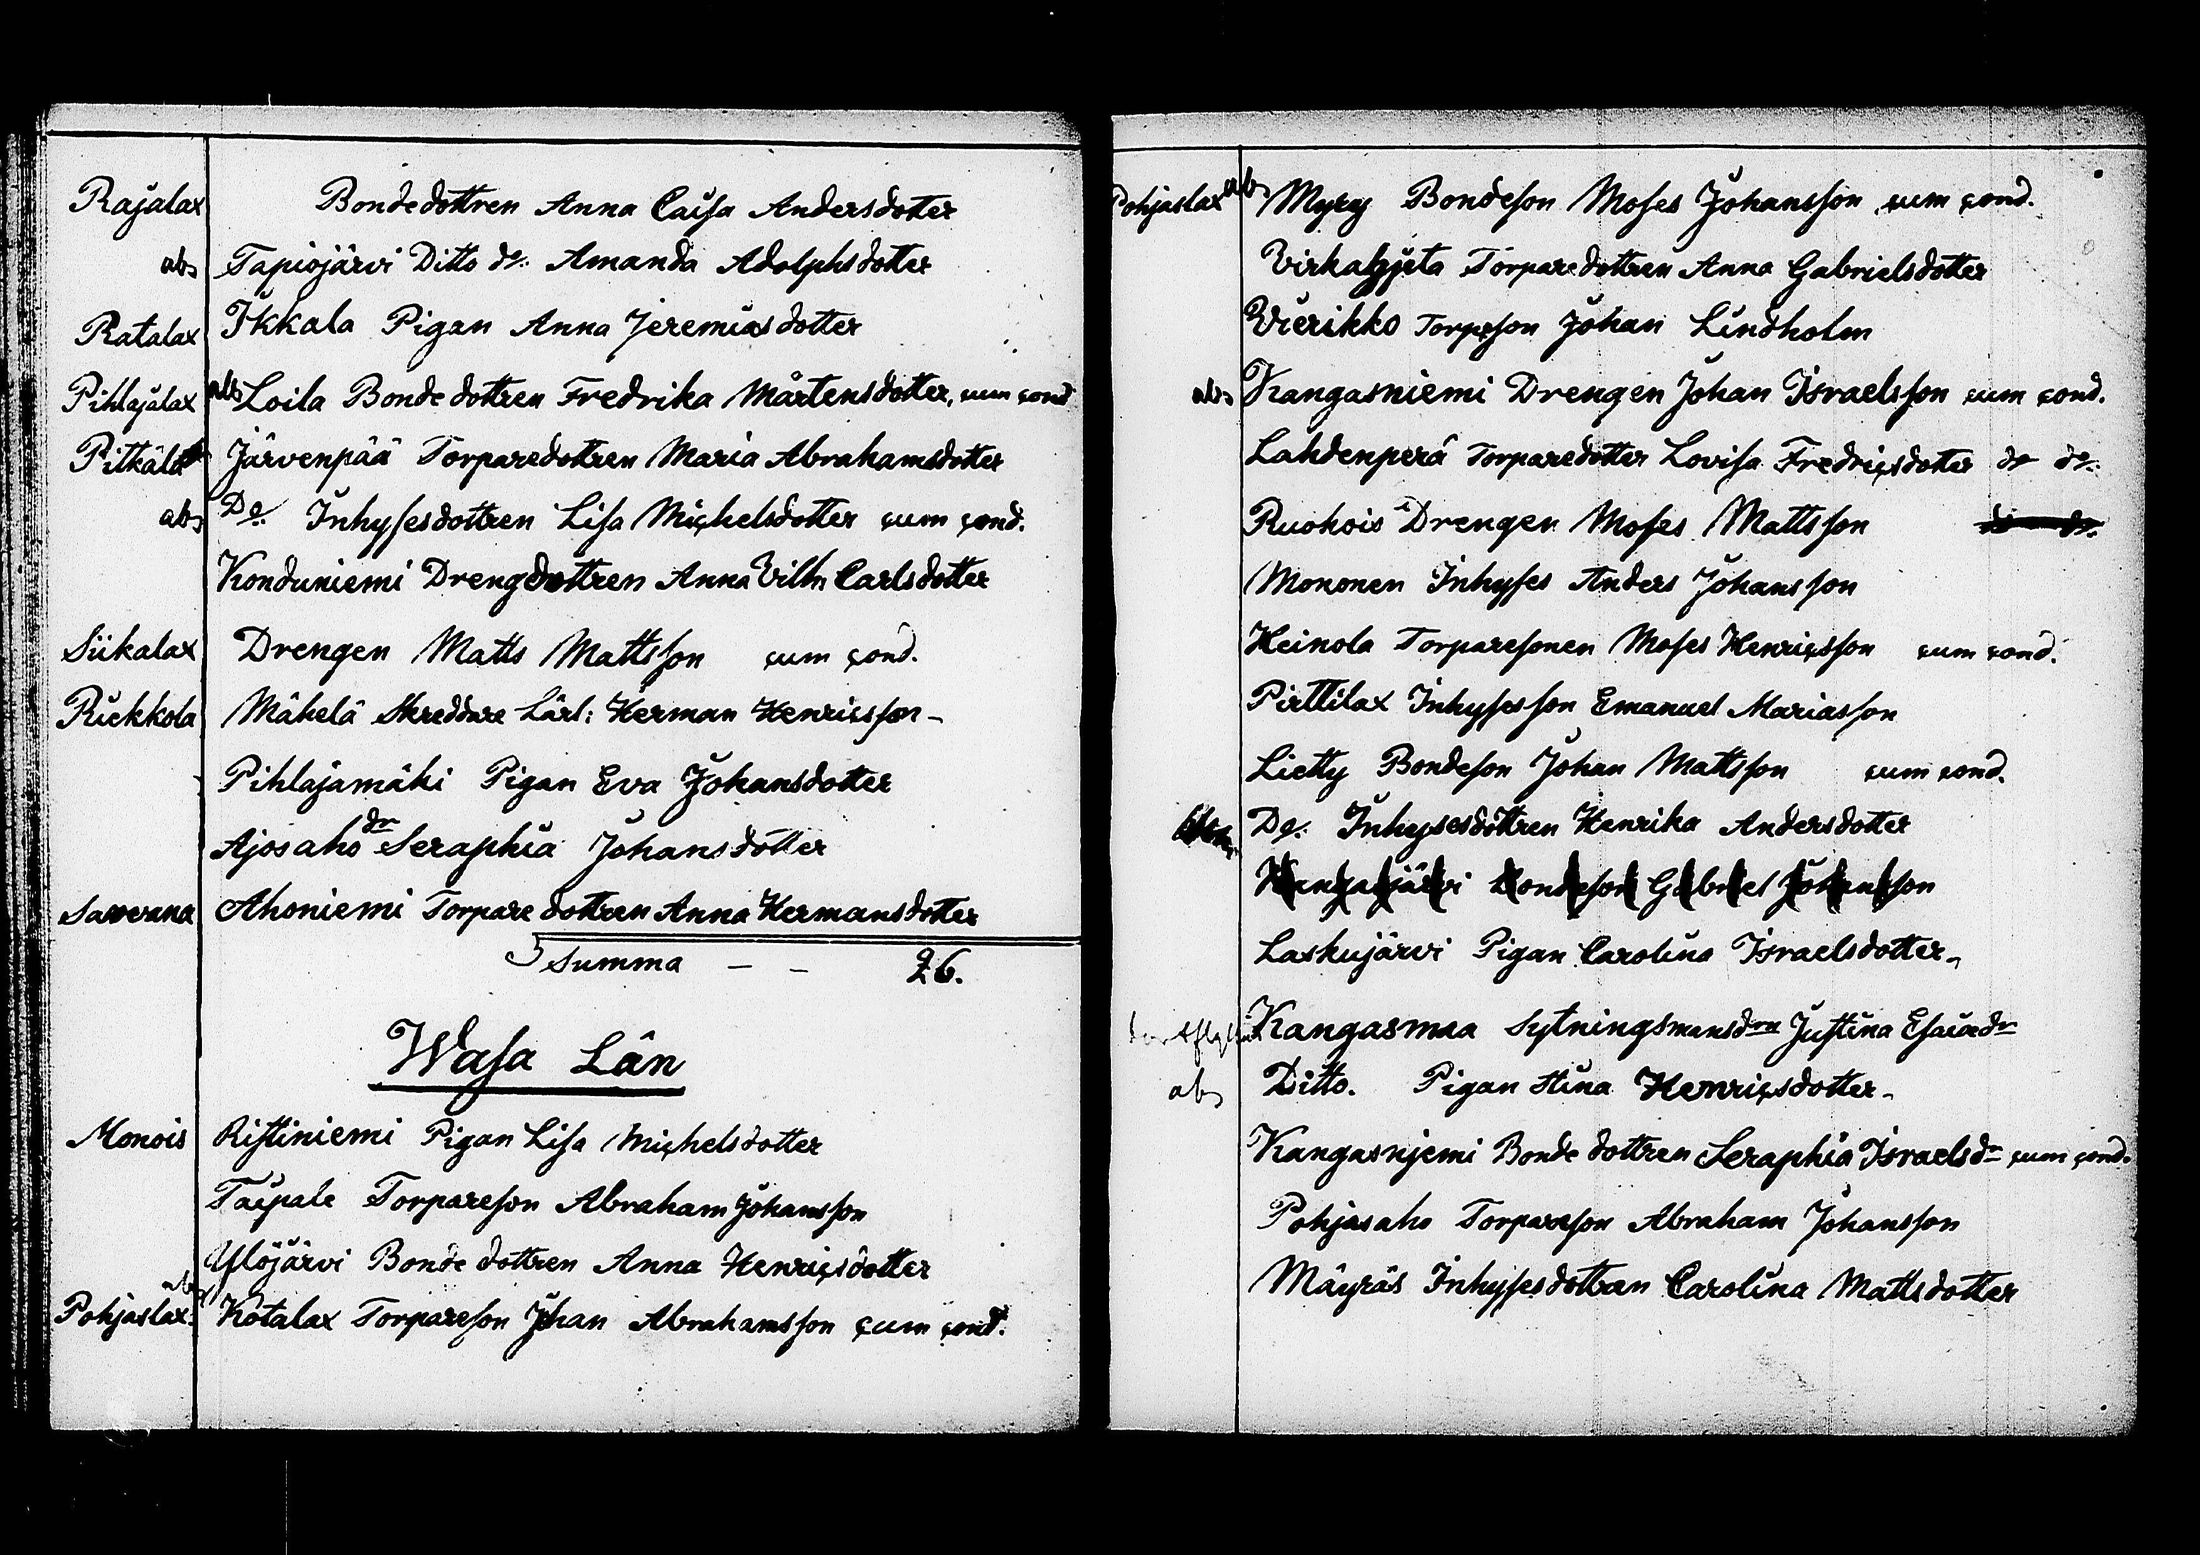 Rajalax Bondedottren Anna Caisa Andersdotter
abs Tapiojärvi Ditto do. Amanda Adolphsdotter
Ratalax Ikkala Pigan Anna Jeremiasdotter
Pihlajalax abs Loila Bondedottren Fredrika Mårtensdotter, cum cond
Järvenpää Torparedottren Maria Abrahamsdotter
abs Do. Inhysesdottren Lisa Michelsdotter cum cond.
Konduniemi Drengdottren Anna Vilh. Carlsdotter
Siikalax Drengen Matts Mattsson cum cond.
Riekkola Mäkelä Skreddare Lärl: Herman Henricsson-
Pihlajamäki Pigan Eva Johansdotter
Ajosaho do Seraphia Johansdotter
Ahoniemi Torparedottren Anna Hermansdotter
Summa - - 26.
Wasa Län
Monois Ristiniemi Pigan Lisa Michelsdotter
Taipale Torpareson Abraham Johansson
Ylöjärvi Bondedottren Anna Henricsdotter
Pohjaslax abs Kotalax Torpareson Johan Abrahamsson cum cond.
Pohjaslax abs Myry Bondeson Moses Johansson cum cond.
Torparedottren Anna Gabrielsdotter
Vierikko Torpeson Johan Lindholm
abs Kangasniemi Drengen Johan Israelsson cum cond.
Lahdenperä Torparedotter Lovisa Fredricsdotter do do.
Ruohois Drengen Moses Mattsson do do.
Mononen Inhyses Anders Johansson
Heinola Torparesonen Moses Henricsson cum cond.
Pirttilax Inhysesson Emanuel Mariasson
Lietty Bondeson Johan Mattsson cum cond.
Do. Inhysesdottren Henrika Andersdotter
Kangasjärvi Bondeson Gabriel Johansson
Laskujärvi Pigan Carolina Israelsdotter-
Kangasmaa Sytningsmansdrn Justina Esaiadr
abs Ditto. Pigan Stina Henricsdotter-
Kangasniemi Bondedottren Seraphia Israelsdr cum cond.
Pohjasaho Torpareson Abraham Johansson
Mäyräs Inhysesdottran Carolina Mattsdotter